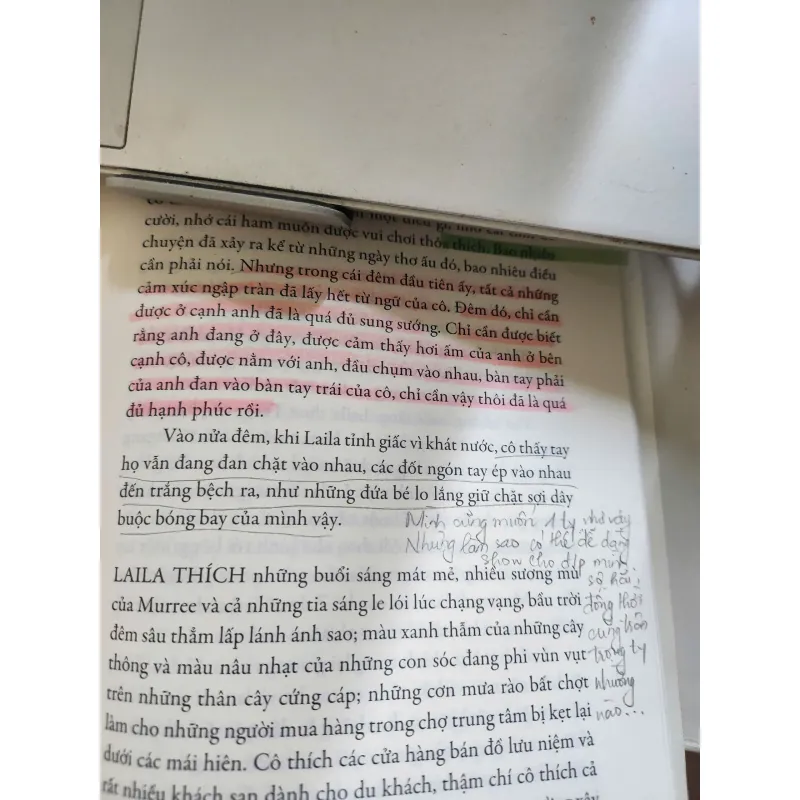 cười, nhớ cái ham muốn được vui chơi thỏa thích. Bao nhiêu
chuyện đã xảy ra kể từ những ngày thơ ấu đó, bao nhiêu điều
cần phải nói. Nhưng trong cái đêm đầu tiên ấy, tất cả những
cảm xúc ngập tràn đã lấy hết từ ngữ của cô. Đêm đó, chỉ cần
được ở cạnh anh đã là quá đủ sung sướng. Chỉ cần được biết
rằng anh đang ở đây, được cảm thấy hơi ấm của anh ở bên
cạnh cô, được nằm với anh, đầu chụm vào nhau, bàn tay phải
của anh đan vào bàn tay trái của cô, chỉ cần vậy thôi đã là quá
đủ hạnh phúc rồi.
Vào nửa đêm, khi Laila tỉnh giấc vì khát nước, cô thấy tay
họ vẫn đang đan chặt vào nhau, các đốt ngón tay ép vào nhau
đến trắng bệch ra, như những đứa bé lo lắng giữ chặt sợi dây
buộc bóng bay của mình vậy.
Mình cũng muốn 1 ty như vậy
Nhưng làm sao có thể dễ dàng
show cho đáp mình
sở hữu
đồng thời
cũng hồn
trong ty
nhường
nào...
LAILA THÍCH những buổi sáng mát mẻ, nhiều sương mù
của Murree và cả những tia sáng le lói lúc chạng vạng, bầu trời
đêm sâu thẳm lấp lánh ánh sao; màu xanh thẫm của những cây
thông và màu nâu nhạt của những con sóc đang phi vùn vụt
trên những thân cây cứng cáp; những cơn mưa rào bất chợt
làm cho những người mua hàng trong chợ trung tâm bị kẹt lại
dưới các mái hiên. Cô thích các cửa hàng bán đồ lưu niệm và
rất nhiều khách sạn dành cho du khách, thậm chí cô thích cả